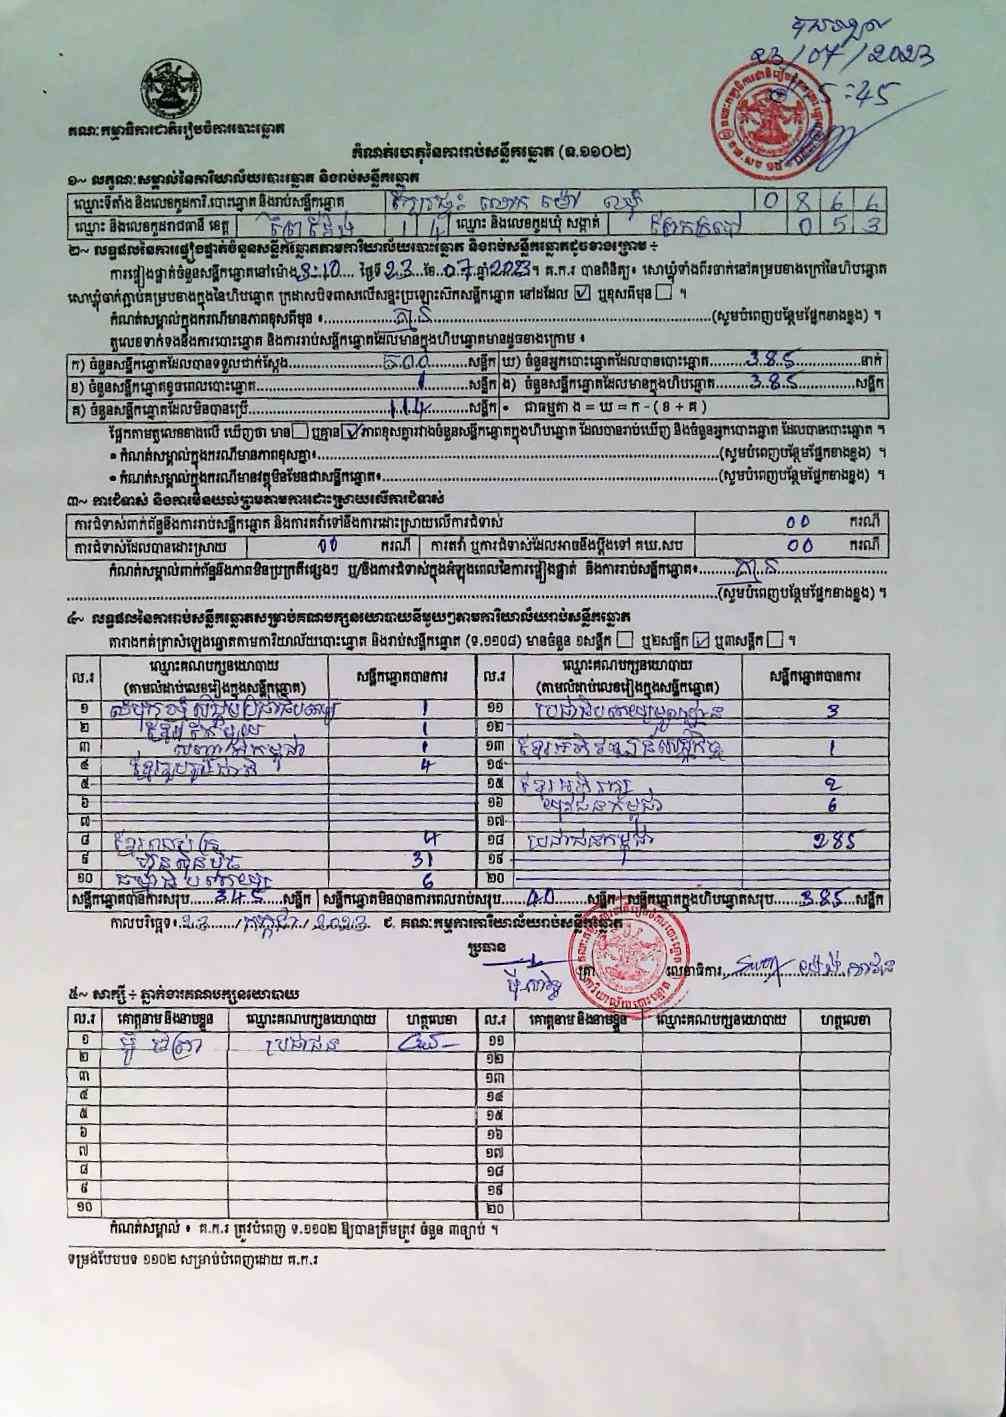 23/07/2023
5:45
គណៈកម្មាធិការជាតិរៀបចំការបោះឆ្នោត
កំណត់ហេតុនៃការរាប់សន្លឹកឆ្នោត (ទ.១១០២)
១~ លក្ខណៈសម្គាល់នៃការិយាល័យបោះឆ្នោត និងរាប់សន្លឹកឆ្នោត
ឈ្មោះទីតាំង និងលេខកូដការិ.បោះឆ្នោត និងរាប់សន្លឹកឆ្នោត 0 8 6 6
ឈ្មោះ និងលេខកូដរាជធានី ខេត្ត ព្រៃវែង 1 4 ឈ្មោះ និងលេខកូដឃុំ សង្កាត់ 0 5 3
២~ លទ្ធផលនៃការផ្ទៀងផ្ទាត់ចំនួនសន្លឹកឆ្នោតតាមការិយាល័យបោះឆ្នោត និងរាប់សន្លឹកឆ្នោតដូចខាងក្រោម ÷
ការផ្ទៀងផ្ទាត់ចំនួនសន្លឹកឆ្នោតនៅម៉ោង 3:10 ថ្ងៃទី 23 ខែ 07 ឆ្នាំ 2023 ។ គ.ក.រ បានពិនិត្យ៖ សោឃ្លុំទាំងពីរចាក់នៅគម្របខាងក្រៅនៃហិបឆ្នោត
សោឃ្លុំចាក់ភ្ជាប់គម្របខាងក្នុងនៃហិបឆ្នោត ក្រដាសបិទពាសលើសន្ទះប្រឡោះសិកសន្លឹកឆ្នោត នៅដដែល ☑ ឬខុសពីមុន ☐ ។
កំណត់សម្គាល់ក្នុងករណីមានភាពខុសពីមុន ៖ គ្មាន (សូមបំពេញបន្ថែមផ្នែកខាងខ្នង) ។
តួលេខទាក់ទងនឹងការបោះឆ្នោត និងការរាប់សន្លឹកឆ្នោតដែលមានក្នុងហិបឆ្នោតមានដូចខាងក្រោម ៖
ក) ចំនួនសន្លឹកឆ្នោតដែលបានទទួលជាក់ស្តែង 500 សន្លឹក ឃ) ចំនួនអ្នកបោះឆ្នោតដែលបានបោះឆ្នោត 385 នាក់
ខ) ចំនួនសន្លឹកឆ្នោតខូចពេលបោះឆ្នោត 1 សន្លឹក ង) ចំនួនសន្លឹកឆ្នោតដែលមានក្នុងហិបឆ្នោត 385 សន្លឹក
គ) ចំនួនសន្លឹកឆ្នោតដែលមិនបានប្រើ 114 សន្លឹក • ជាធម្មតា ង = ឃ = ក - ( ខ + គ )
ផ្អែកតាមតួលេខខាងលើ ឃើញថា មាន ☐ ឬគ្មាន ☑ ភាពខុសគ្នារវាងចំនួនសន្លឹកឆ្នោតក្នុងហិបឆ្នោត ដែលបានរាប់ឃើញ និងចំនួនអ្នកបោះឆ្នោត ដែលបានបោះឆ្នោត ។
• កំណត់សម្គាល់ក្នុងករណីមានភាពខុសគ្នា៖ (សូមបំពេញបន្ថែមផ្នែកខាងខ្នង) ។
• កំណត់សម្គាល់ក្នុងករណីមានវត្ថុមិនមែនជាសន្លឹកឆ្នោត៖ (សូមបំពេញបន្ថែមផ្នែកខាងខ្នង) ។
៣~ ការជំទាស់ និងការមិនយល់ព្រមតាមការដោះស្រាយលើការជំទាស់
ការជំទាស់ពាក់ព័ន្ធនឹងការរាប់សន្លឹកឆ្នោត និងការតវ៉ាទៅនឹងការដោះស្រាយលើការជំទាស់ 00 ករណី
ការជំទាស់ដែលបានដោះស្រាយ 00 ករណី ការតវ៉ា ឬការជំទាស់ដែលអាចនឹងប្តឹងទៅ គឃ.សប 00 ករណី
កំណត់សម្គាល់ពាក់ព័ន្ធនឹងភាពមិនប្រក្រតីផ្សេងៗ ឬ/និងការជំទាស់ក្នុងអំឡុងពេលនៃការផ្ទៀងផ្ទាត់ និងការរាប់សន្លឹកឆ្នោត៖ គ្មាន
(សូមបំពេញបន្ថែមផ្នែកខាងខ្នង) ។
៤~ លទ្ធផលនៃការរាប់សន្លឹកឆ្នោតសម្រាប់គណបក្សនយោបាយនីមួយៗតាមការិយាល័យរាប់សន្លឹកឆ្នោត
តារាងកត់ត្រាសំឡេងឆ្នោតតាមការិយាល័យបោះឆ្នោត និងរាប់សន្លឹកឆ្នោត (ទ.១១០៨) មានចំនួន ១សន្លឹក ☐ ឬ២សន្លឹក ☑ ឬ៣សន្លឹក ☐ ។
ល.រ ឈ្មោះគណបក្សនយោបាយ (តាមលំដាប់លេខរៀងក្នុងសន្លឹកឆ្នោត) សន្លឹកឆ្នោតបានការ ល.រ ឈ្មោះគណបក្សនយោបាយ (តាមលំដាប់លេខរៀងក្នុងសន្លឹកឆ្នោត) សន្លឹកឆ្នោតបានការ
១ សំបុកឃ្មុំសង្គមប្រជាធិបតេយ្យ 1 ១១ 3
២ ខ្មែររួបរួម 1 ១២
៣ 1 ១៣ 1
៤ ខ្មែររួបរួមជាតិ 4 ១៤
៥ ១៥ 2
៦ ១៦ យុវជនកម្ពុជា 6
៧ ១៧
៨ ខ្មែរ 4 ១៨ ប្រជាជនកម្ពុជា 285
៩ ហ៊្វុនស៊ិនប៉ិច 31 ១៩
១០ 6 ២០
សន្លឹកឆ្នោតបានការសរុប 345 សន្លឹក សន្លឹកឆ្នោតមិនបានការពេលរាប់សរុប 40 សន្លឹក សន្លឹកឆ្នោតក្នុងហិបឆ្នោតសរុប 385 សន្លឹក
កាលបរិច្ឆេទ៖ 23 / កក្កដា / 2023 ៩. គណៈកម្មការការិយាល័យរាប់សន្លឹកឆ្នោត
ប្រធាន
ត្រា លេខាធិការ
៥~ សាក្សី ÷ ភ្នាក់ងារគណបក្សនយោបាយ
ល.រ គោត្តនាម និងនាមខ្លួន ឈ្មោះគណបក្សនយោបាយ ហត្ថលេខា ល.រ គោត្តនាម និងនាមខ្លួន ឈ្មោះគណបក្សនយោបាយ ហត្ថលេខា
១ ប្រជាជន ១១
២ ១២
៣ ១៣
៤ ១៤
៥ ១៥
៦ ១៦
៧ ១៧
៨ ១៨
៩ ១៩
១០ ២០
កំណត់សម្គាល់ ៖ គ.ក.រ ត្រូវបំពេញ ទ.១១០២ ឱ្យបានត្រឹមត្រូវ ចំនួន ៣ច្បាប់ ។
ទម្រង់បែបបទ ១១០២ សម្រាប់បំពេញដោយ គ.ក.រ